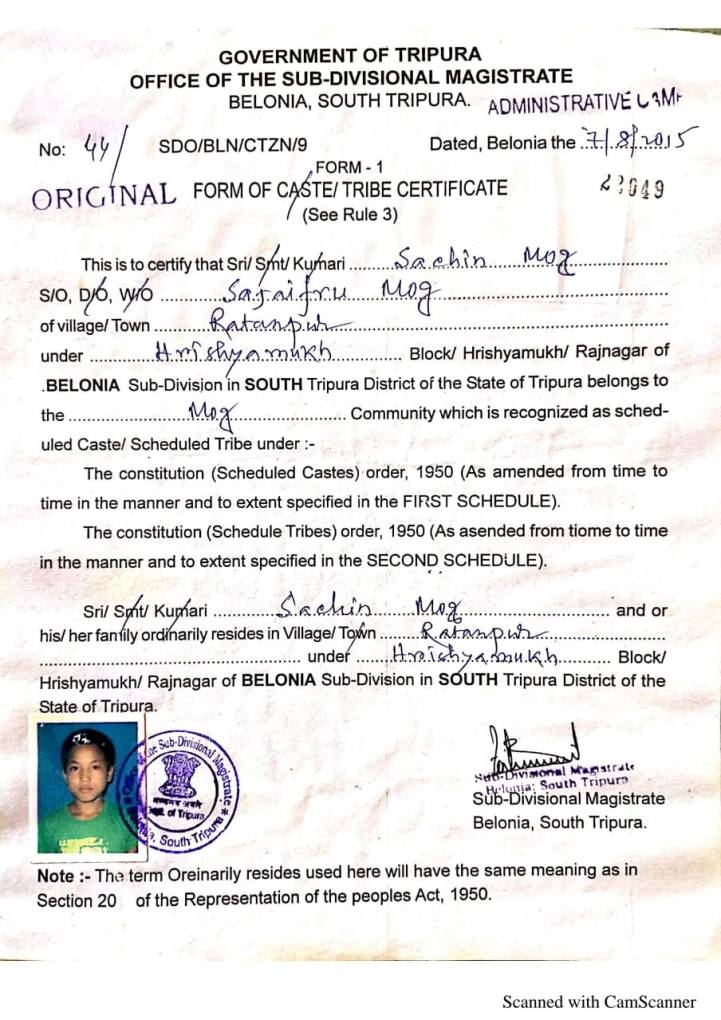 GOVERNMENT OF TRIPURA
OFFICE OF THE SUB-DIVISIONAL MAGISTRATE
BELONIA, SOUTH TRIPURA. ADMINISTRATIVE CAMP
No: 44/ SDO/BLN/CTZN/9 Dated, Belonia the 7/8/2015
FORM - 1
ORIGINAL FORM OF CASTE/ TRIBE CERTIFICATE 23049
(See Rule 3)
This is to certify that Sri/ Smt/ Kumari Sachin Mog
S/O, D/O, W/O Sajaifru Mog
of village/ Town Ratanpur
under Hrishyamukh Block/ Hrishyamukh/ Rajnagar of
.BELONIA Sub-Division in SOUTH Tripura District of the State of Tripura belongs to
the Mog Community which is recognized as sched-
uled Caste/ Scheduled Tribe under :-
The constitution (Scheduled Castes) order, 1950 (As amended from time to
time in the manner and to extent specified in the FIRST SCHEDULE).
The constitution (Schedule Tribes) order, 1950 (As asended from tiome to time
in the manner and to extent specified in the SECOND SCHEDULE).
Sri/ Smt/ Kumari Sachin Mog and or
his/ her family ordinarily resides in Village/ Town Ratanpur
under Hrishyamukh Block/
Hrishyamukh/ Rajnagar of BELONIA Sub-Division in SOUTH Tripura District of the
State of Tripura.
the Sub-Divisional Magistrate
सत्यमेव जयते
of Tripura
South Tripura
Sub-Divisional Magistrate
Belonia: South Tripura
Sub-Divisional Magistrate
Belonia, South Tripura.
Note :- The term Oreinarily resides used here will have the same meaning as in
Section 20 of the Representation of the peoples Act, 1950.
Scanned with CamScanner